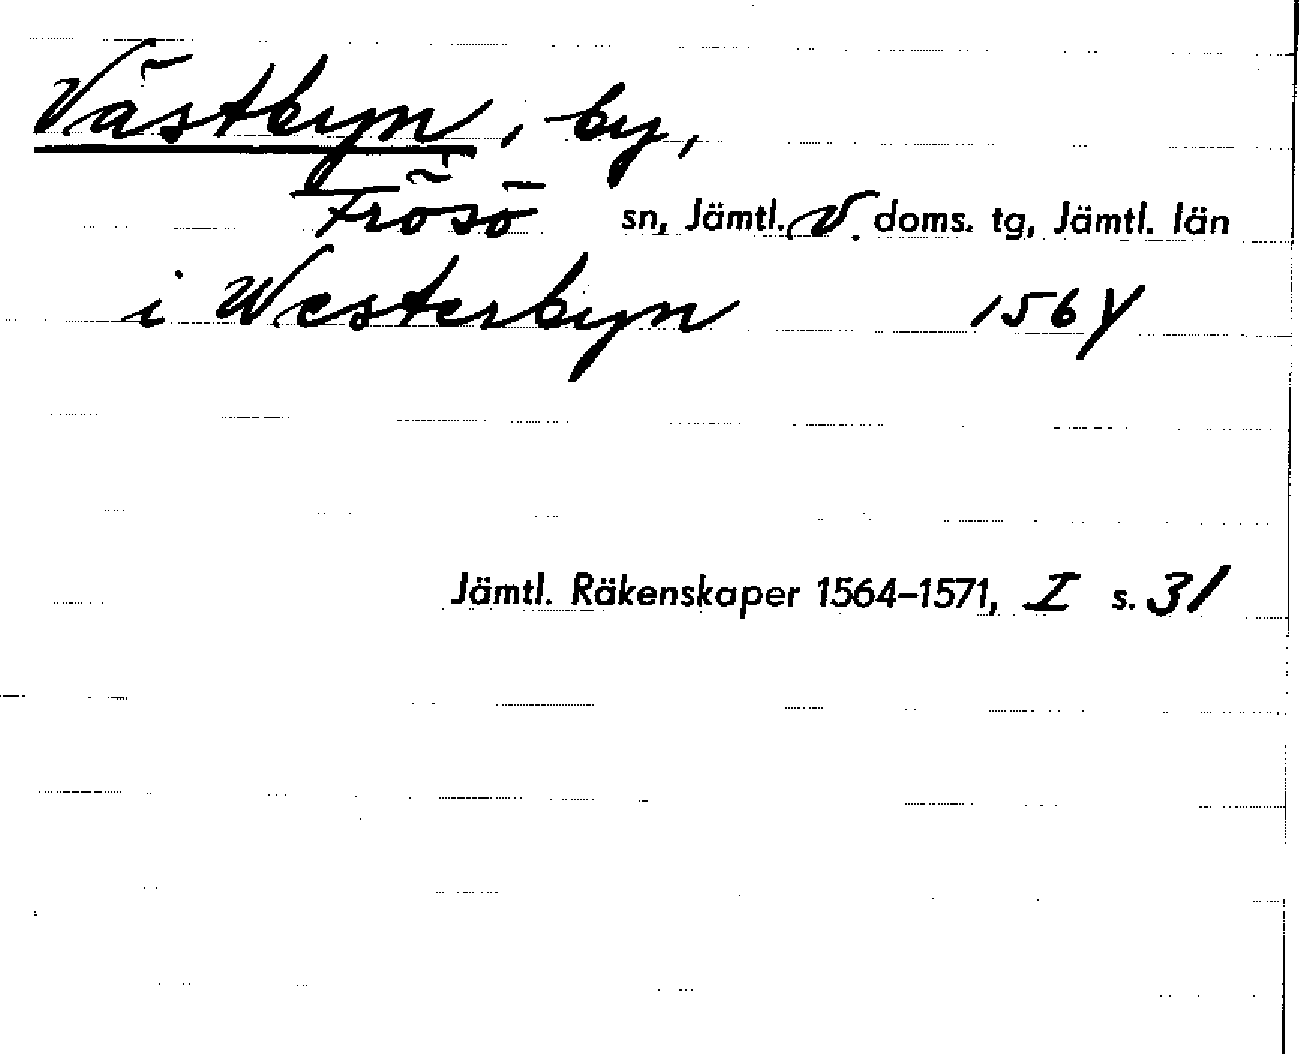 Västbyn, by,
Frösö sn, Jämtl. V. doms. tg, Jämtl. län
i Westerbyn 1564
Jämtl. Räkenskaper 1564–1571, I s. 31